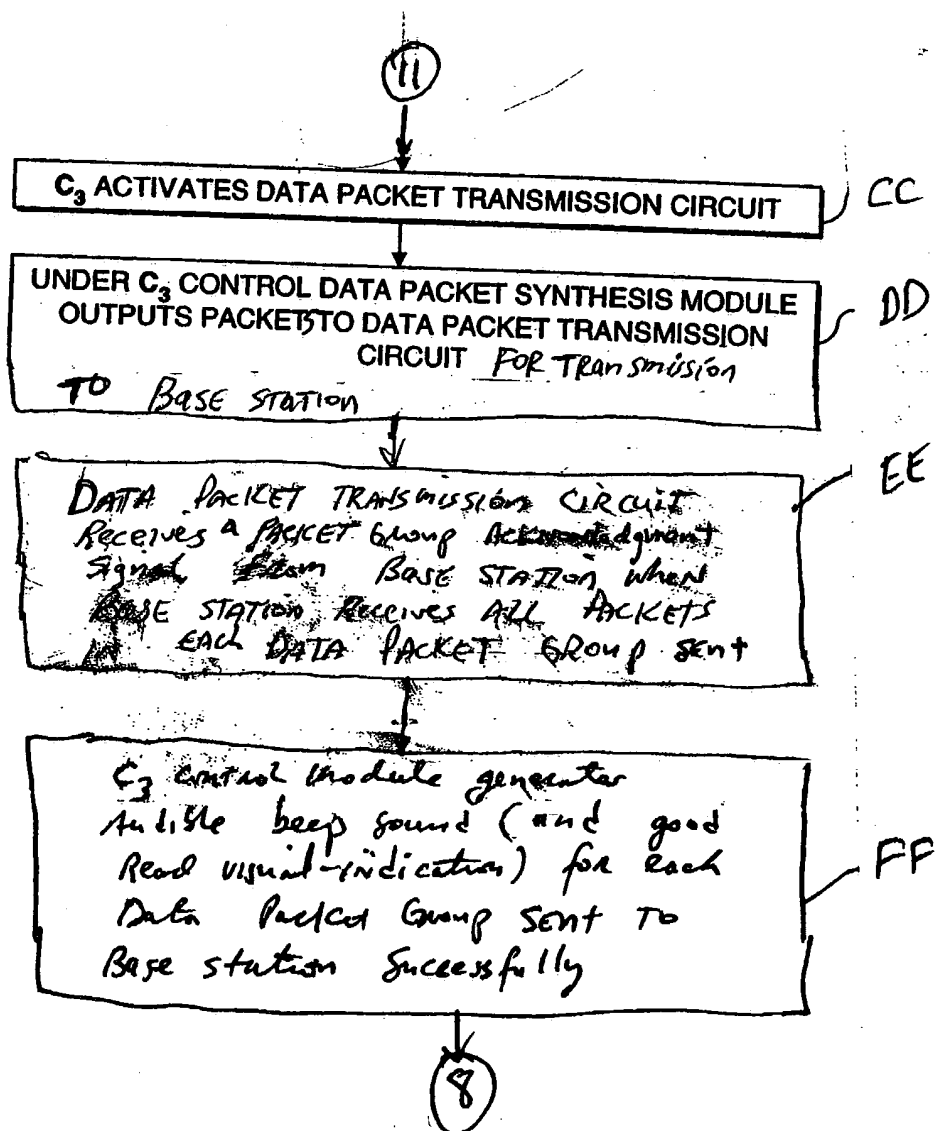 11
C3 ACTIVATES DATA PACKET TRANSMISSION CIRCUIT
CC
UNDER C3 CONTROL DATA PACKET SYNTHESIS MODULE
OUTPUTS PACKETS TO DATA PACKET TRANSMISSION
CIRCUIT FOR Transmission
TO Base Station
DD
DATA PACKET TRANSMISSION CIRCUIT
Receives a PACKET Group Acknowledgment
Signal From BASE STATION when
BASE STATION Receives ALL PACKETS
IN EACH DATA PACKET GROUP sent
EE
C3 control module generates
Audible beep sound (and good
Read visual-indication) for each
Data Packet Group Sent To
Base station Successfully
FF
8